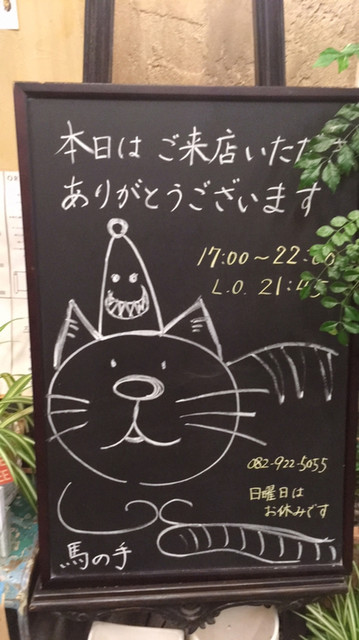 本日は ご来店いただ
ありがとうございます
17:00〜22:00
L.O. 21:
082-922-5055
日曜日は
お休みです
馬の手